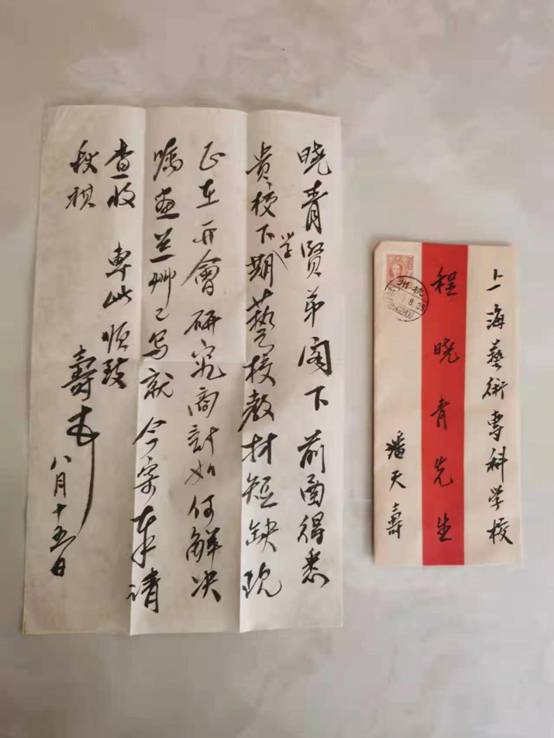 晓青贤弟阁下前面得悉
贵校下学期艺校教材短缺现
正在开會研究商討如何解决
嘱画兰艸已写就今寄奉请
查收 專此順致
秋祺
壽
八月十五日
上海藝術專科学校
程晓青先生
潘天壽